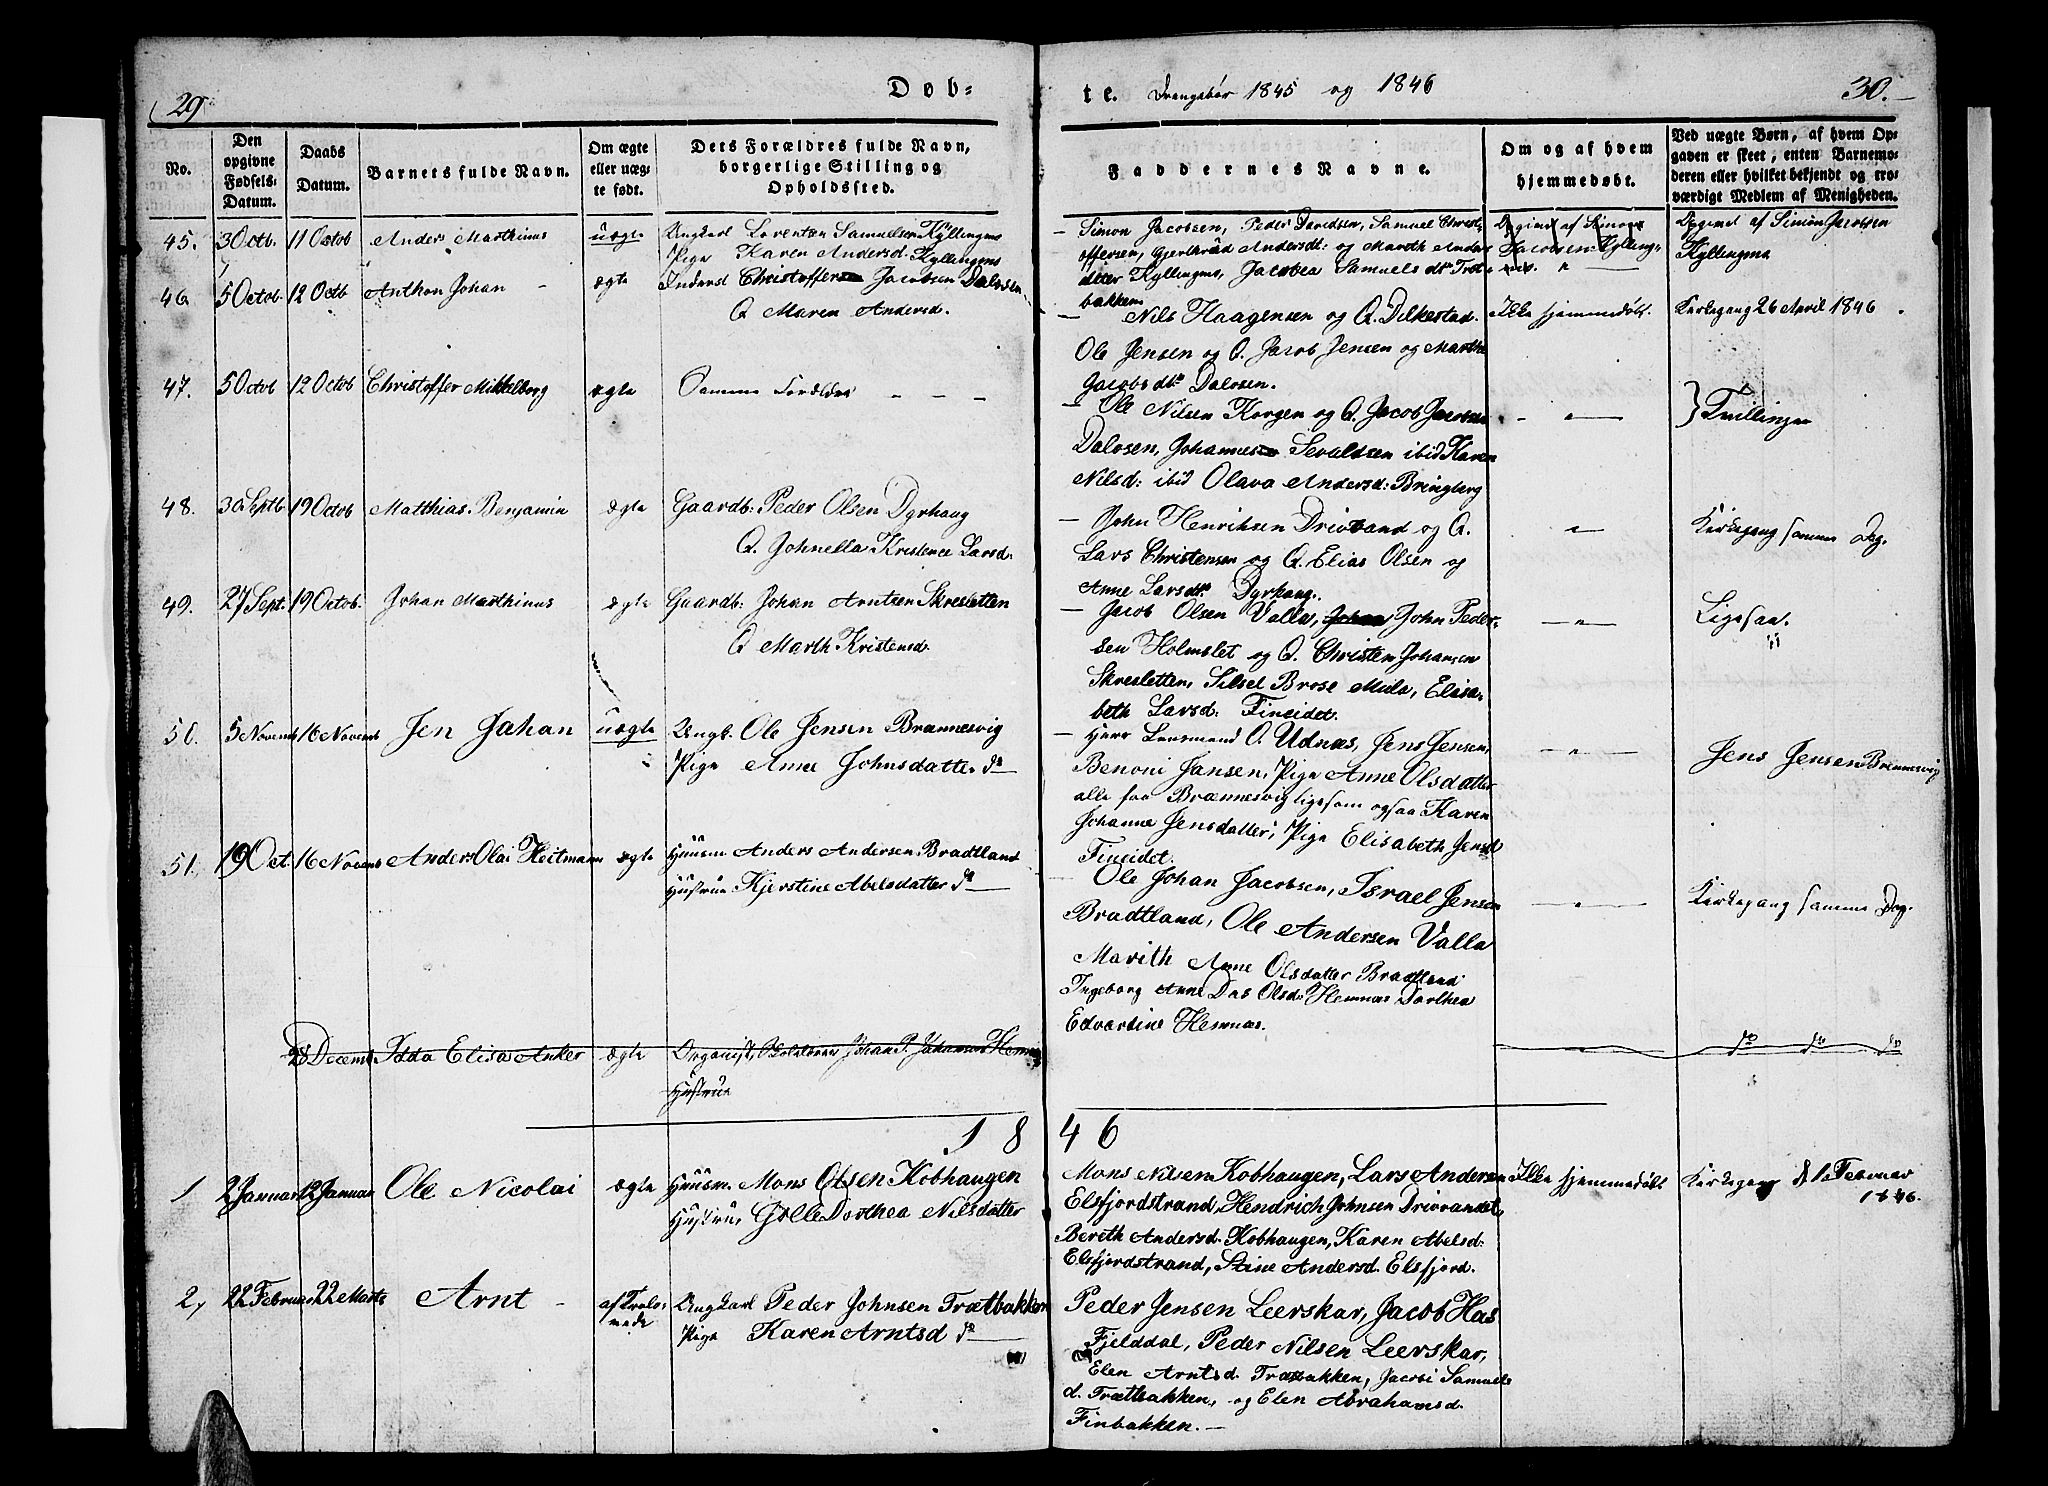 29
Døb=
te. Drengebør 1845 og 1846
30.
No.
Den opgivne Fødsels-Datum.
Daabs Datum.
Barnets fulde Navn.
Om ægte eller uægte født.
Dets Forældres fulde Navn, borgerlige Stilling og Opholdssted.
Faddernes Navne.
Om og af hvem hjemmedøbt.
Ved uægte Børn, af hvem Opgaven er skeet, enten Barnemoderen eller hvilket bekjendt og troværdigt Medlem af Menigheden.
45. 3 Octb. 11 Octob Anders Marthinus uægte Ungkarl Lorentz Samuelsen Kyllingms
Pige Karen Andersd. Kyllingms
Simon Jacobsen, Peder Davidsen, Samuel Christ-
offersen, Gjerthrud Andersdt: og Marth Anders
datter Kyllingms, Jacobea Samuels dtr Træt
bakken
Opgivet af Simon Jacobsen Kylling-
Opgivet af Simon Jacobsen
Kyllingms
46 5 Octob. 12 Octb Anthon Johan ægte Inderst Christoffer Jacobsen Dalosen
Q Maren Andersd.
Nils Haagensen og Q. Dilkestad.
Ole Jensen og Q. Jacob Jensen og Martha
Jacobsdtr Dalosen.
Ikke hjemmedøbt.
Kirkegang 26 April 1846
47. 5 Octob 12 Octob Christoffer Mikkelborg ægte Samme Forældre
Ole Nilsen Korgen og Q. Jacob Jacobsen
Dalosen, Johannes Sevaldsen ibid Karen
Nilsd: ibid Olava Andersd: Bringberg
} Tvillinger
48. 30 Septb. 19 Octob Matthias Benjamin ægte Gaardb: Peder Olsen Dyrhaug
Q. Johnella Kristence Larsd:
John Henriksen Drivrand og Q.
Lars Christensen og Q. Elias Olsen og
Anne Larsdtr Dyrhaug.
Kirkegang samme Dag.
49. 27 Sept. 19 Octob. Johan Marthinus ægte Gaardb: Johan Arntzen Skresletten
Q Marth Kristensd.
Jacob Olsen Valla, Johan John Peder-
sen Holmslet og Q. Christen Johansen
Skresletten, Silsel Brose Mula, Elisa-
beth Larsd: Fineidet.
Ligesaa.
50. 5 Novemb 16 Novemb Jen Jahan uægte Ungk. Ole Jensen Brannesvig
Pige Anne Johnsdatter do
Herr Lensmand O. Udnæs, Jens Jensen,
Benoni Jansen, Pige Anne Olsdatter
alle fra Brænnesvig ligesom ogsaa Karen
Johanne Jensdatter, Pige Elisabeth Jensd
Fineidet.
Jens Jensen Brennesvig
51. 19 Oct. 16 Novemb Anders Olai Heitmann ægte Huusm Anders Andersen Bradtland
Hustrue Kjerstine Abelsdatter do
Ole Johan Jacobsen, Israel Jensen
Bradtland, Ole Andersen Valla
Marith Anne Olsdatter Bradtland
Ingeborg Anne Das Olsd: Hemnæs Dorthea
Edvardine Hemnæs.
Kirkegang samme Dag.
28 Decemb. Idda Elisa Anker ægte Organist, Skolelærer Johan P. Johansen Hemnæs
Hustrue
do do do
1846
1 2 Januar 12 Januar Ole Nicolai ægte Huusm. Mons Olsen Kobhaugen
Hustrue Golle Dorthea Nilsdatter
Mons Nilsen Kobhaugen, Lars Andersen
Elsfjordstrand, Hendrich Johnsen Drivrandet,
Bereth Andersd. Kobhaugen, Karen Abelsd:
Elsfjordstrand, Stine Andersd. Elsfjord.
Ikke hjemmedøbt
Kirkegang d 1. Februar
1846.
2, 22 Februar 22 Marts Arnt af Trolo-
vede Ungkarl Peder Johnsen Trætbakken
Pige Karen Arntsd do
Peder Jensen Leerskar, Jacob Has
Fjelddal, Peder Nilsen Leerskar,
Elen Arntsd. Trætbakken, Jacobi Samuels
d. Trætbakken, og Elen Abrahamsd.
Finbakken.